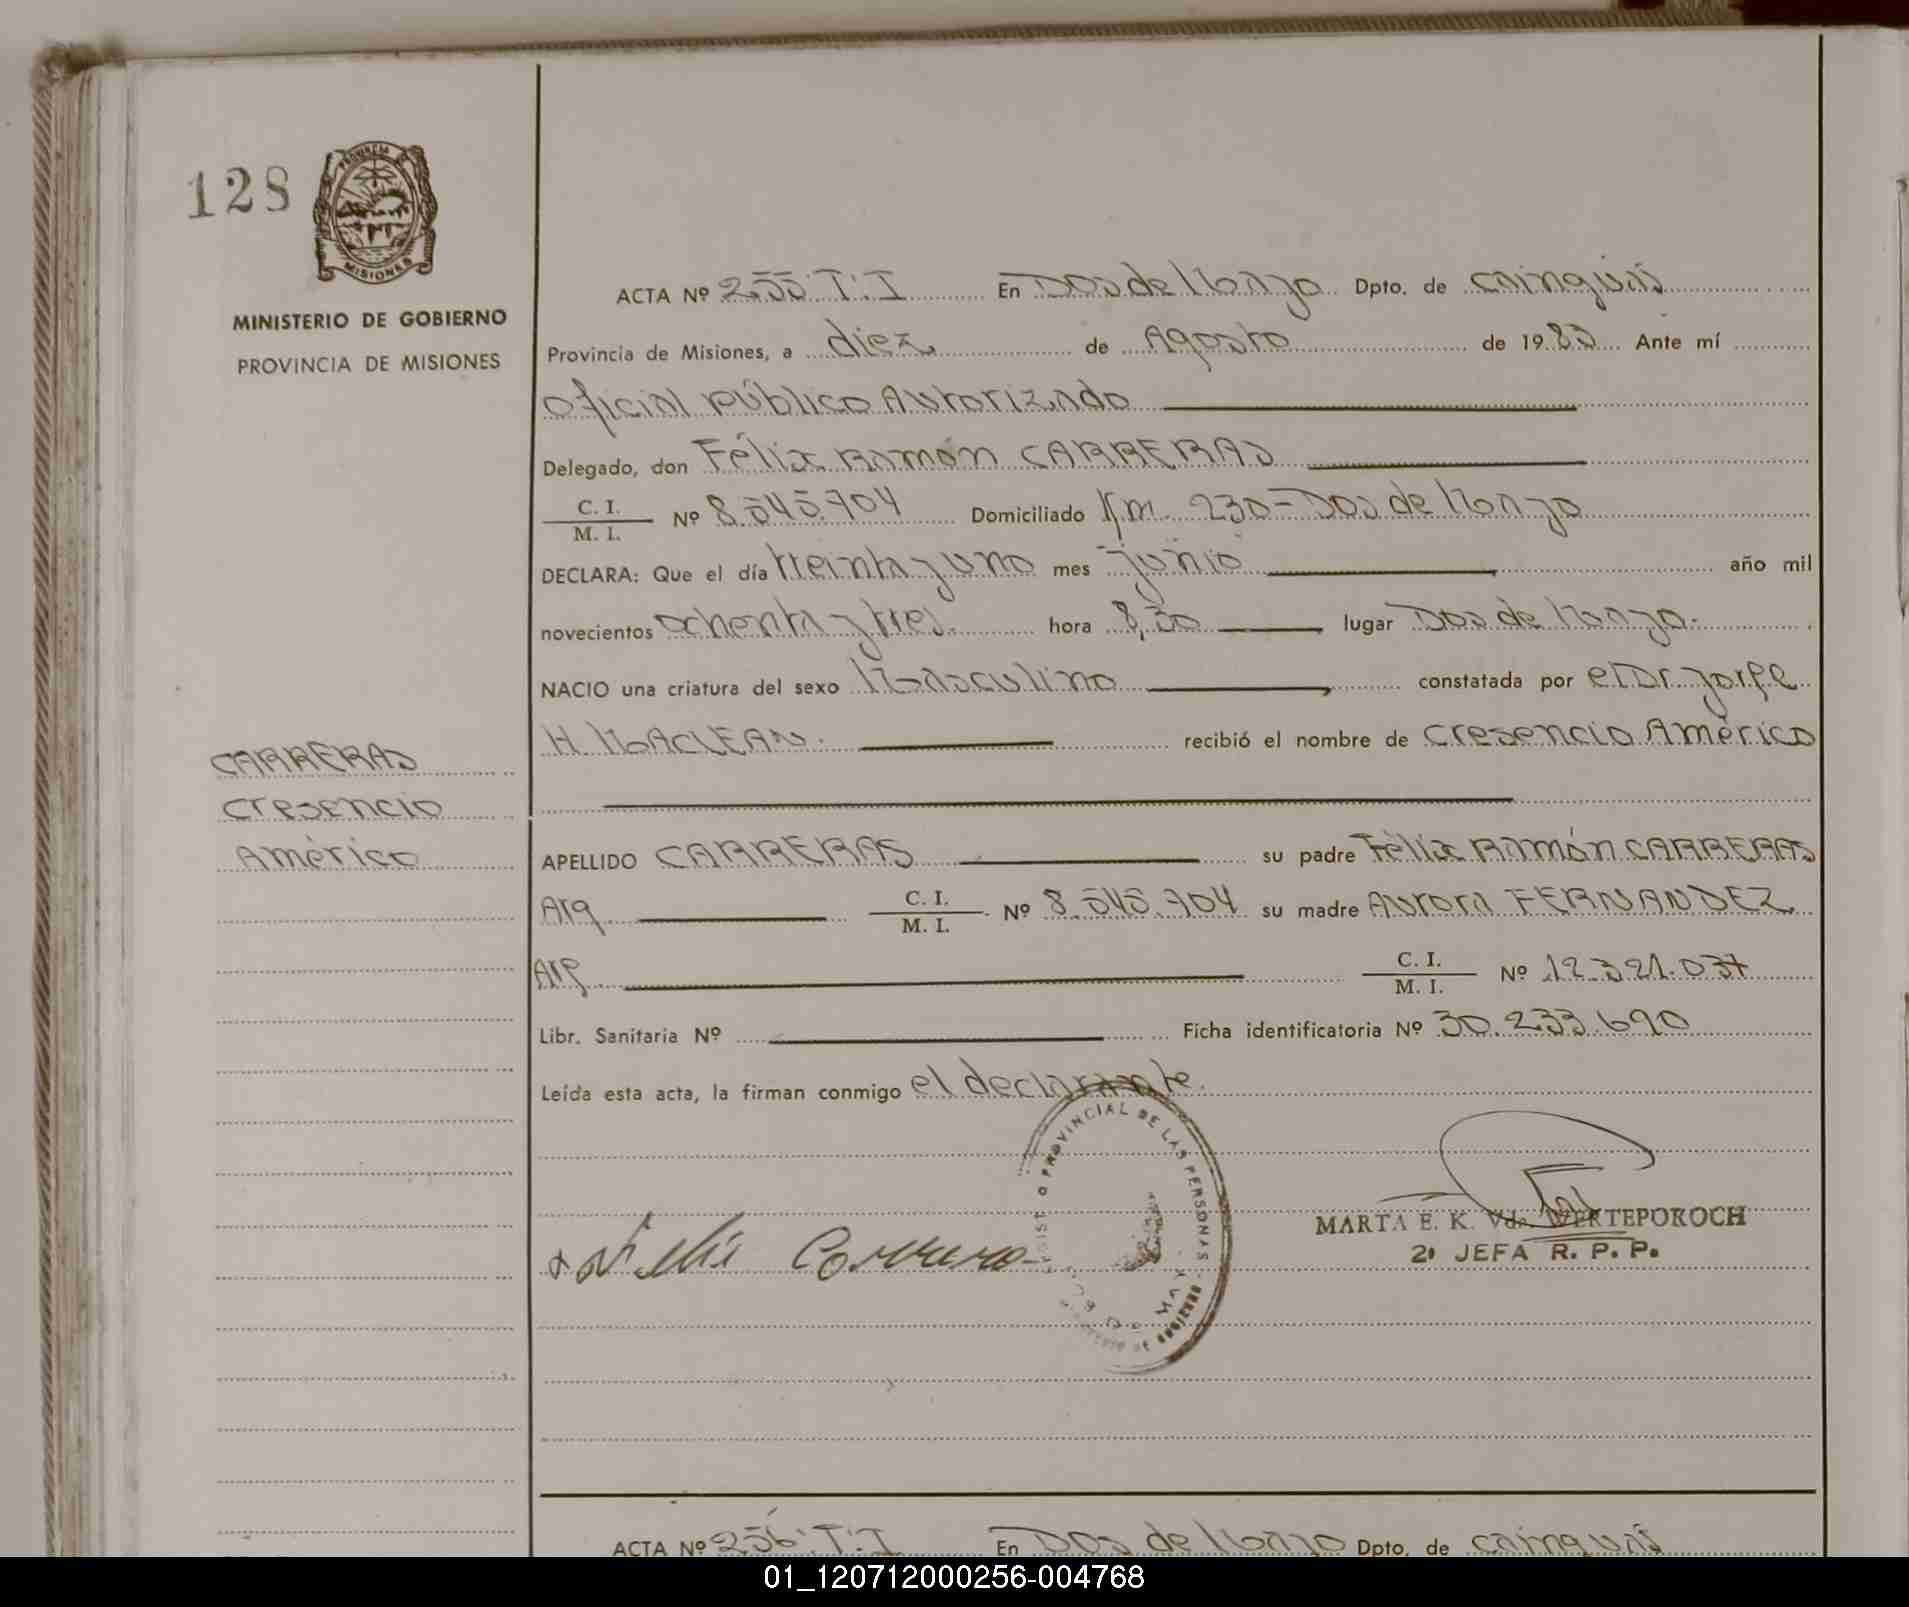 128
PROVINCIA DE
MISIONES
MINISTERIO DE GOBIERNO
PROVINCIA DE MISIONES
CARRERAS
Cresencio
Américo
ACTA Nº 255 T:I En Dos de Mayo Dpto. de Cainguás
Provincia de Misiones, a diez de Agosto de 1983 Ante mí
Oficial Público Autorizado
Delegado, don Félix Ramón CARRERAS
C. I.
M. I. Nº 8.545.904 Domiciliado Km. 230-Dos de Mayo
DECLARA: Que el día treinta y uno mes junio año mil
novecientos ochenta y tres. hora 8,30 lugar Dos de Mayo.
NACIO una criatura del sexo Masculino constatada por el Dr. Jorge
H. MACLEAN. recibió el nombre de Cresencio Américo
APELLIDO CARRERAS su padre Félix Ramón CARRERAS
Arg C. I.
M. I. Nº 8.545.904 su madre Aurora FERNANDEZ
Arg C. I.
M. I. Nº 12.321.037
Libr. Sanitaria Nº Ficha identificatoria Nº 30.233.690
Leída esta acta, la firman conmigo el declarante.
PROVINCIAL DE LAS PERSONAS
MARTA E. K. Vda. WERTEPOROCH
2º JEFA R. P. P.
ACTA Nº 256 T:I En Dos de Mayo Dpto. de Cainguás
01_120712000256-004768